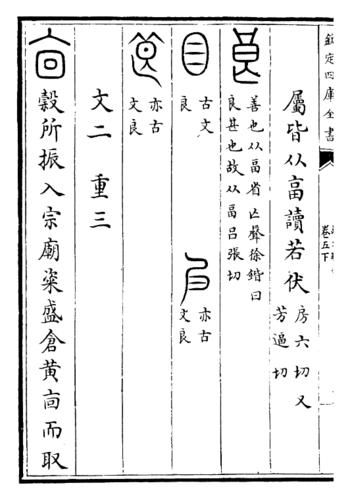 欽定四庫全書
卷五下
屬皆从畗讀若伏
房六切又
芳逼切
善也从畗省亡聲徐鍇曰
良甚也故从畗呂張切
古文
良
亦古
文良
亦古
文良
文二 重三
穀所振入宗廟粢盛倉黃㐭而取